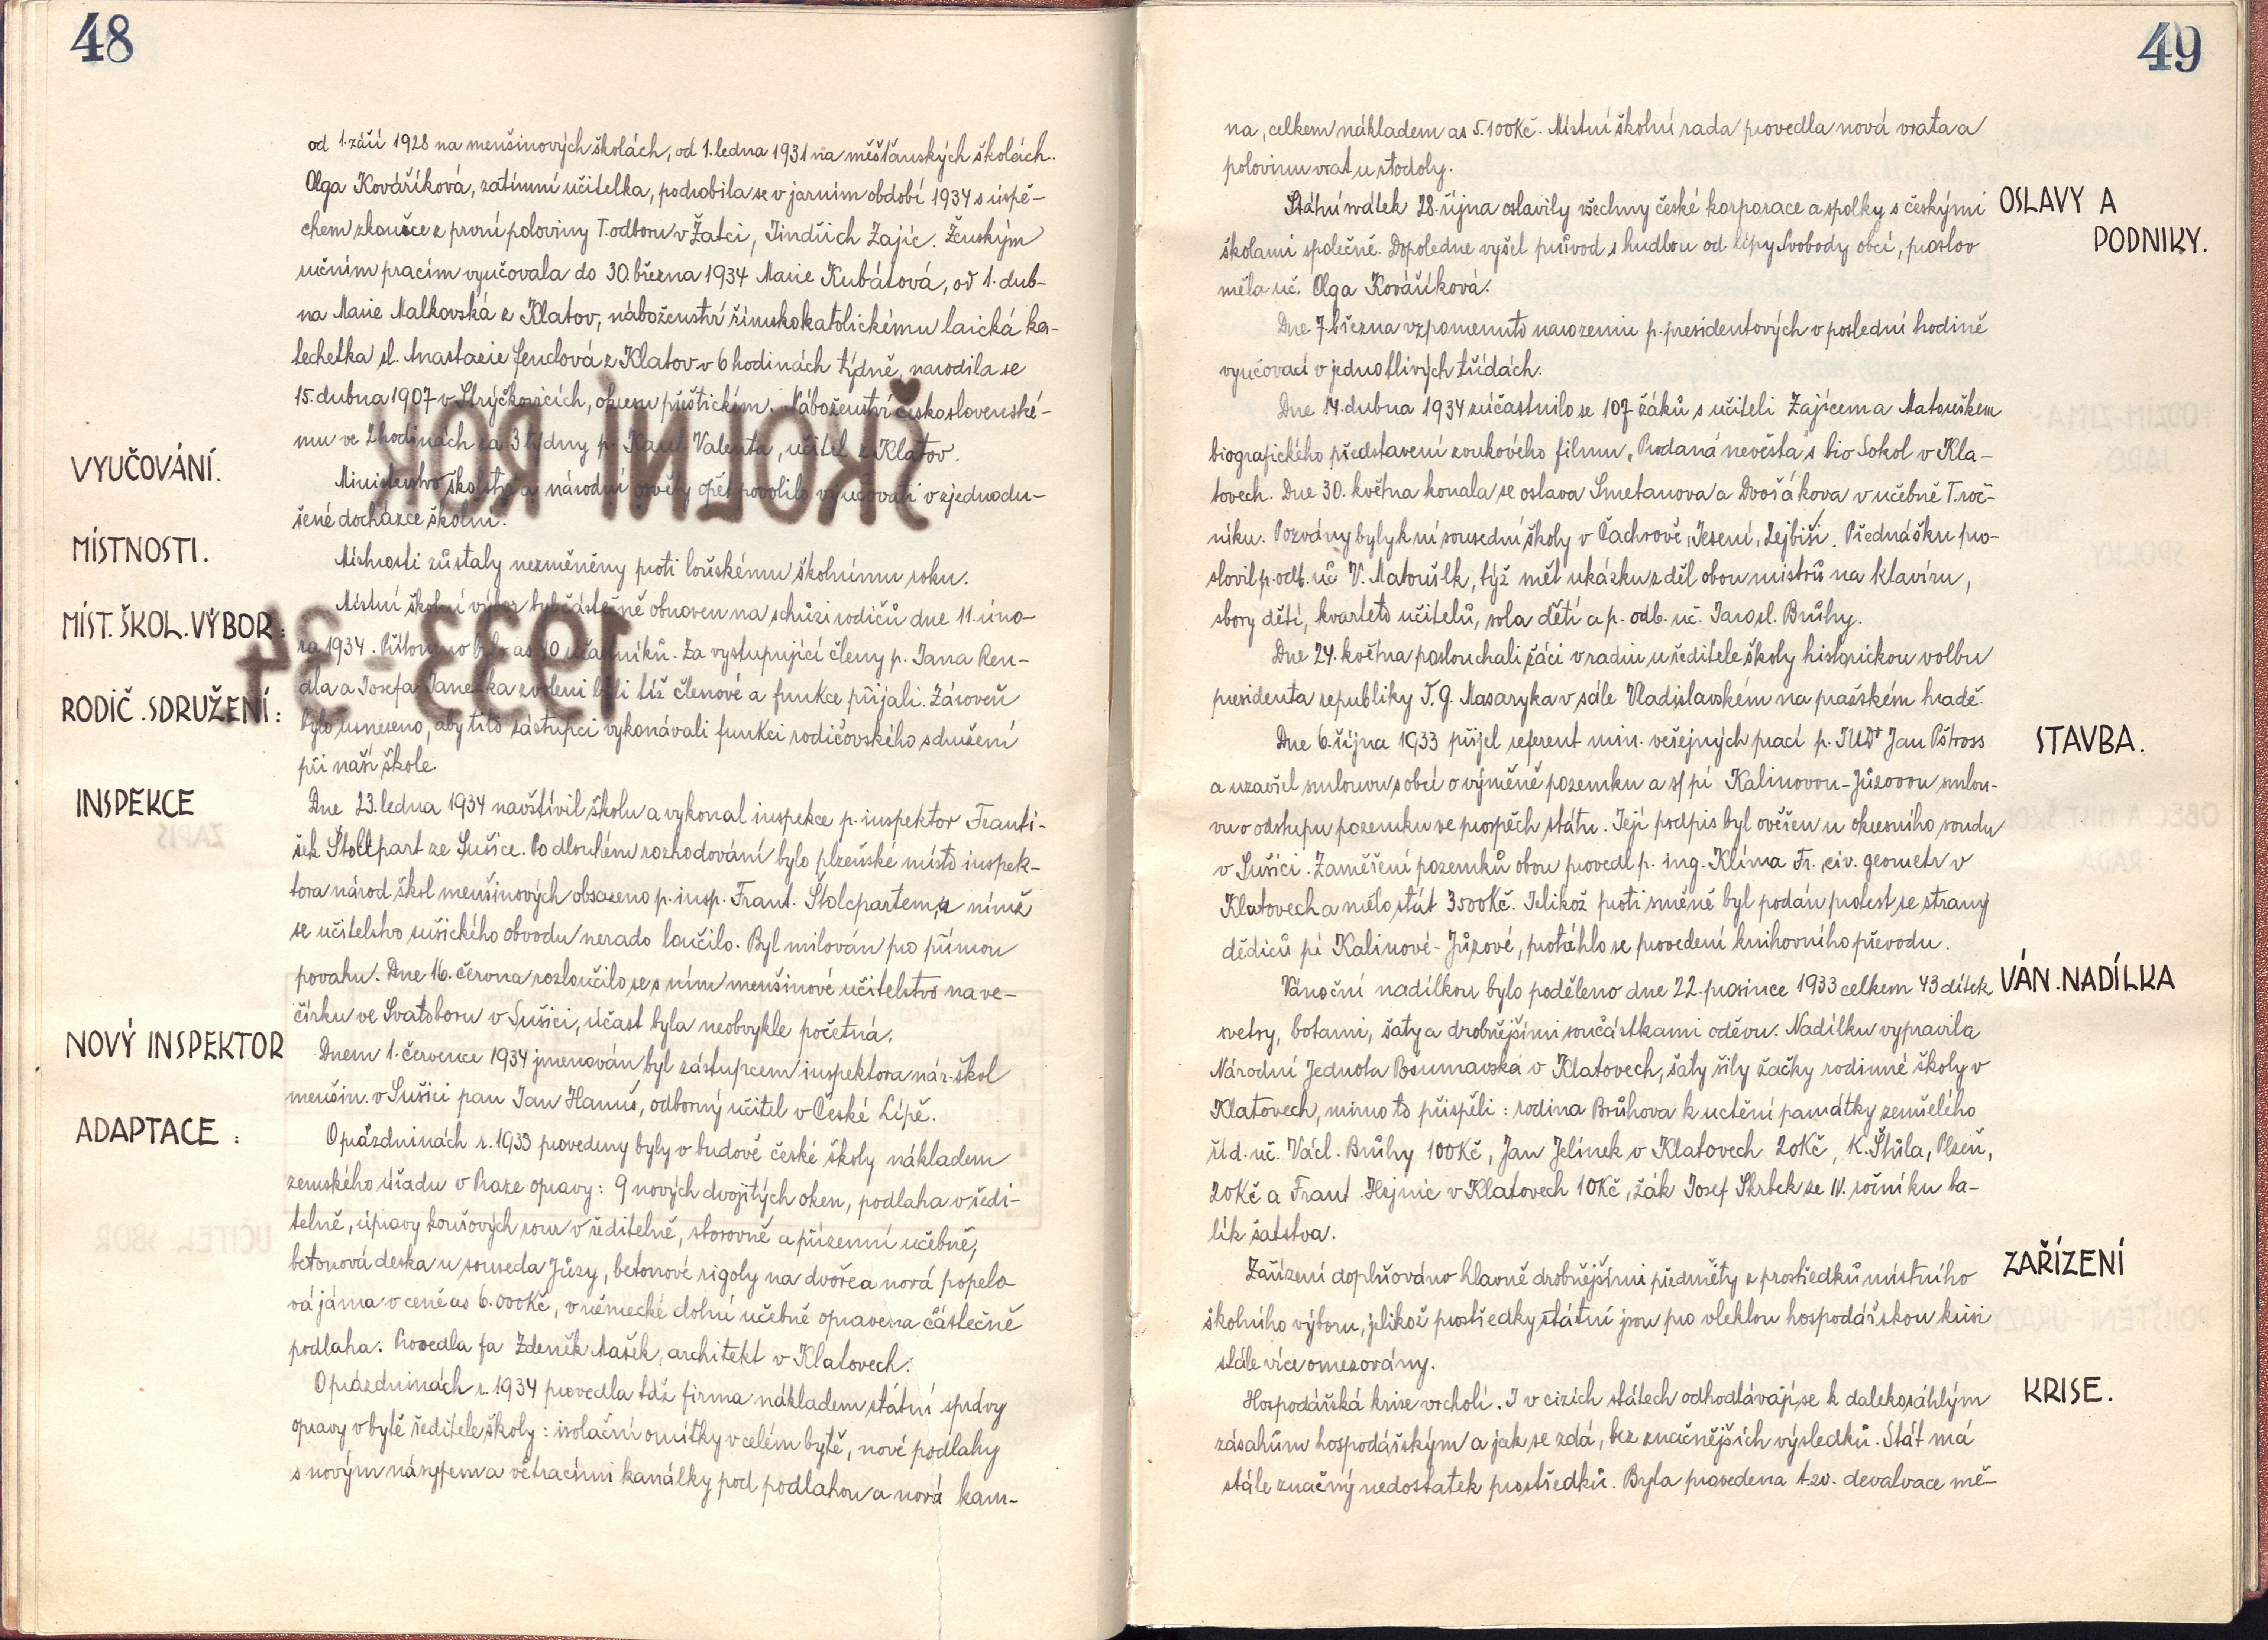 48
od 1. září 1928 na menšinových školách, od 1. ledna 1931 na měšťanských školách.
Olga Kováříková, zatímní učitelka, podrobila se v jarním období 1934 s úspě-
chem zkoušce z první poloviny I. odboru v Žatci, Jindřich Zajíc. Ženským
ručním pracím vyučovala do 30. března 1934 Marie Kubátová, od 1. dub-
na Marie Malkovská z Klatov, náboženství římskokatolickému laická ka-
techetka sl. Anastazie Jendová z Klatov v 6 hodinách týdně, narodila se
15. dubna 1907 v Strýčkovicích, okresu přeštickém. Náboženství českoslovénské-
mu ve 2 hodinách za 3 týdny p. Karel Valenta, učitel z Klatov.
VYUČOVÁNÍ.
Ministerstvo školství a národní osvěty opět povolilo vyučovati v zjednodu-
šené docházce školní.
MÍSTNOSTI.
Místnosti zůstaly nezměněny proti loňskému školnímu roku.
MÍST. ŠKOL. VÝBOR:
Místní školní výbor byl částečně obnoven na schůzi rodičů dne 11. úno-
ra 1934. Přítomno bylo as 40 účastníků. Za vystupující členy p. Jana Ren-
dla a Josefa Janečka zvoleni byli tíž členové a funkce přijali. Zároveň
RODIČ. SDRUŽENÍ:
bylo usneseno, aby tito zástupci vykonávali funkci rodičovského sdružení
při naší škole.
INSPEKCE
Dne 23. ledna 1934 navštívil školu a vykonal inspekce p. inspektor Franti-
šek Štolcpart ze Sušice. Po dlouhém rozhodování bylo plzeňské místo inspek-
tora národ. škol menšinových obsazeno p. insp. Frant. Štolcpartem, s nímž
se učitelstvo sušického obvodu nerado loučilo. Byl milován pro přímou
povahu. Dne 16. června rozloučilo se s ním menšinové učitelstvo na ve-
čírku ve Svatoboru v Sušici, účast byla neobvykle početná.
NOVÝ INSPEKTOR
Dnem 1. července 1934 jmenován byl zástupcem inspektora nár. škol
menšin. v Sušici pan Jan Hanuš, odborný učitel v České Lípě.
ADAPTACE:
O prázdninách r. 1933 provedeny byly v budově české školy nákladem
zemského úřadu v Praze opravy: 9 nových dvojitých oken, podlaha v ředi-
telně, úpravy kouřových rour v ředitelně, sborovně a přízemní učebně,
betonová deska u souseda Jůzy, betonové rigoly na dvoře a nová popelo-
vá jáma v ceně as 6.000Kč, v německé dolní učebně opravena částečně
podlaha. Provedla fa Zdeněk Mašek, architekt v Klatovech.
O prázdninách r. 1934 provedla táž firma nákladem státní správy
opravy v bytě ředitele školy: isolační omítky v celém bytě, nové podlahy
s novým násypem a větracími kanálky pod podlahou a nová kam-
49
na, celkem nákladem as 5.100Kč. Místní školní rada provedla nová vrata a
polovinu vrat u stodoly.
OSLAVY A
PODNIKY.
Státní svátek 28. října oslavily všechny české korporace a spolky s českými
školami společně. Dopoledne vyšel průvod s hudbou od lípy Svobody obcí, proslov
měla uč. Olga Kováříková.
Dne 7. března vzpomenuto narozenin p. presidentových v poslední hodině
vyučovací v jednotlivých třídách.
Dne 14. dubna 1934 zúčastnilo se 107 žáků s učiteli Zajícem a Matouškem
biografického představení zvukového filmu „Prodaná nevěsta" s bio Sokol v Kla-
tovech. Dne 30. května konala se oslava Smetanova a Dvořákova v učebně I. roč-
níku. Pozvány byly k ní sousední školy v Čachrově, Jesení, Zejbiši. Přednášku pro-
slovil p. odb. uč. V. Matoušek, týž měl ukázku z děl obou mistrů na klavíru,
sbory dětí, kvarteto učitelů, sola dětí a p. odb. uč. Jarosl. Brůhy.
Dne 24. května poslouchali žáci v radiu u ředitele školy historickou volbu
presidenta republiky T. G. Masaryka v sále Vladislavském na pražském hradě.
STAVBA.
Dne 6. října 1933 přijel referent min. veřejných prací p. JUDr Jan Pštross
a uzavřel smlouvu s obcí o výměně pozemku a s pí Kalinovou-Jůzovou smlou-
vu o odstupu pozemku ve prospěch státu. Její podpis byl ověřen u okresního soudu
v Sušici. Zaměření pozemků obou provedl p. ing. Klíma Fr., civ. geometr v
Klatovech a mělo stát 3500Kč. Jelikož proti směně byl podán protest se strany
dědiců pí Kalinové-Jůzové, protáhlo se provedení knihovního převodu.
VÁN. NADÍLKA
Vánoční nadílkou bylo poděleno dne 22. prosince 1933 celkem 43 dítek
svetry, botami, šaty a drobnějšími součástkami oděvu. Nadílku vypravila
Národní Jednota Pošumavská v Klatovech, šaty šily žačky rodinné školy v
Klatovech, mimo to přispěli: rodina Brůhova k uctění památky zemřelého
říd. uč. Václ. Brůhy 100Kč, Jan Jelínek v Klatovech 20Kč, K. Štůla, Plzeň,
20Kč a Frant. Hejnic v Klatovech 10Kč, žák Josef Skrbek ze IV. ročníku ba-
lík šatstva.
ZAŘÍZENÍ
Zařízení doplňováno hlavně drobnějšími předměty z prostředků místního
školního výboru, jelikož prostředky státní jsou pro vleklou hospodářskou krisi
stále více omezovány.
KRISE.
Hospodářská krise vrcholí. I v cizích státech odhodlávají se k dalekosáhlým
zásahům hospodářským a jak se zdá, bez značnějších výsledků. Stát má
stále značný nedostatek prostředků. Byla provedena t.zv. devalvace mě-